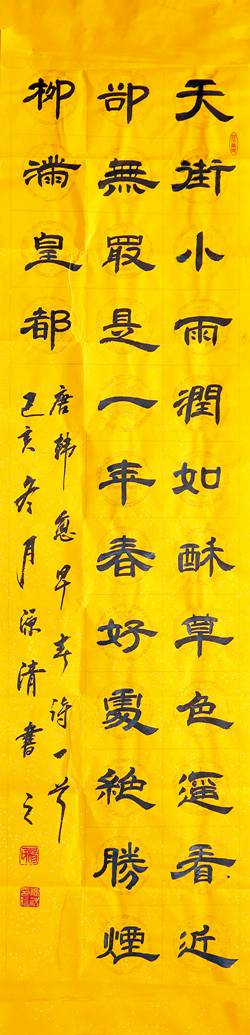 天街小雨潤如酥草色遥看近
卻無最是一年春好處絶勝煙
柳滿皇都
唐韓愈早春詩一首
己亥冬月源清書之